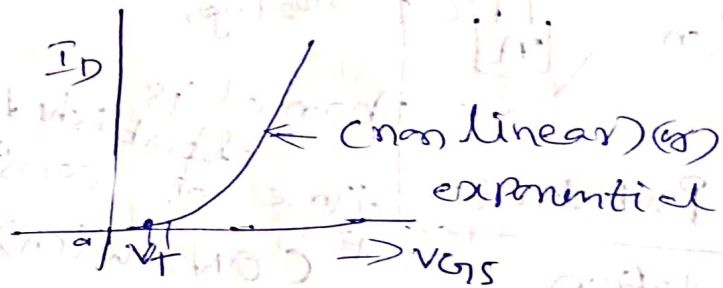 I_D
← (non linear) (or)
exponential
o V_T → V_GS